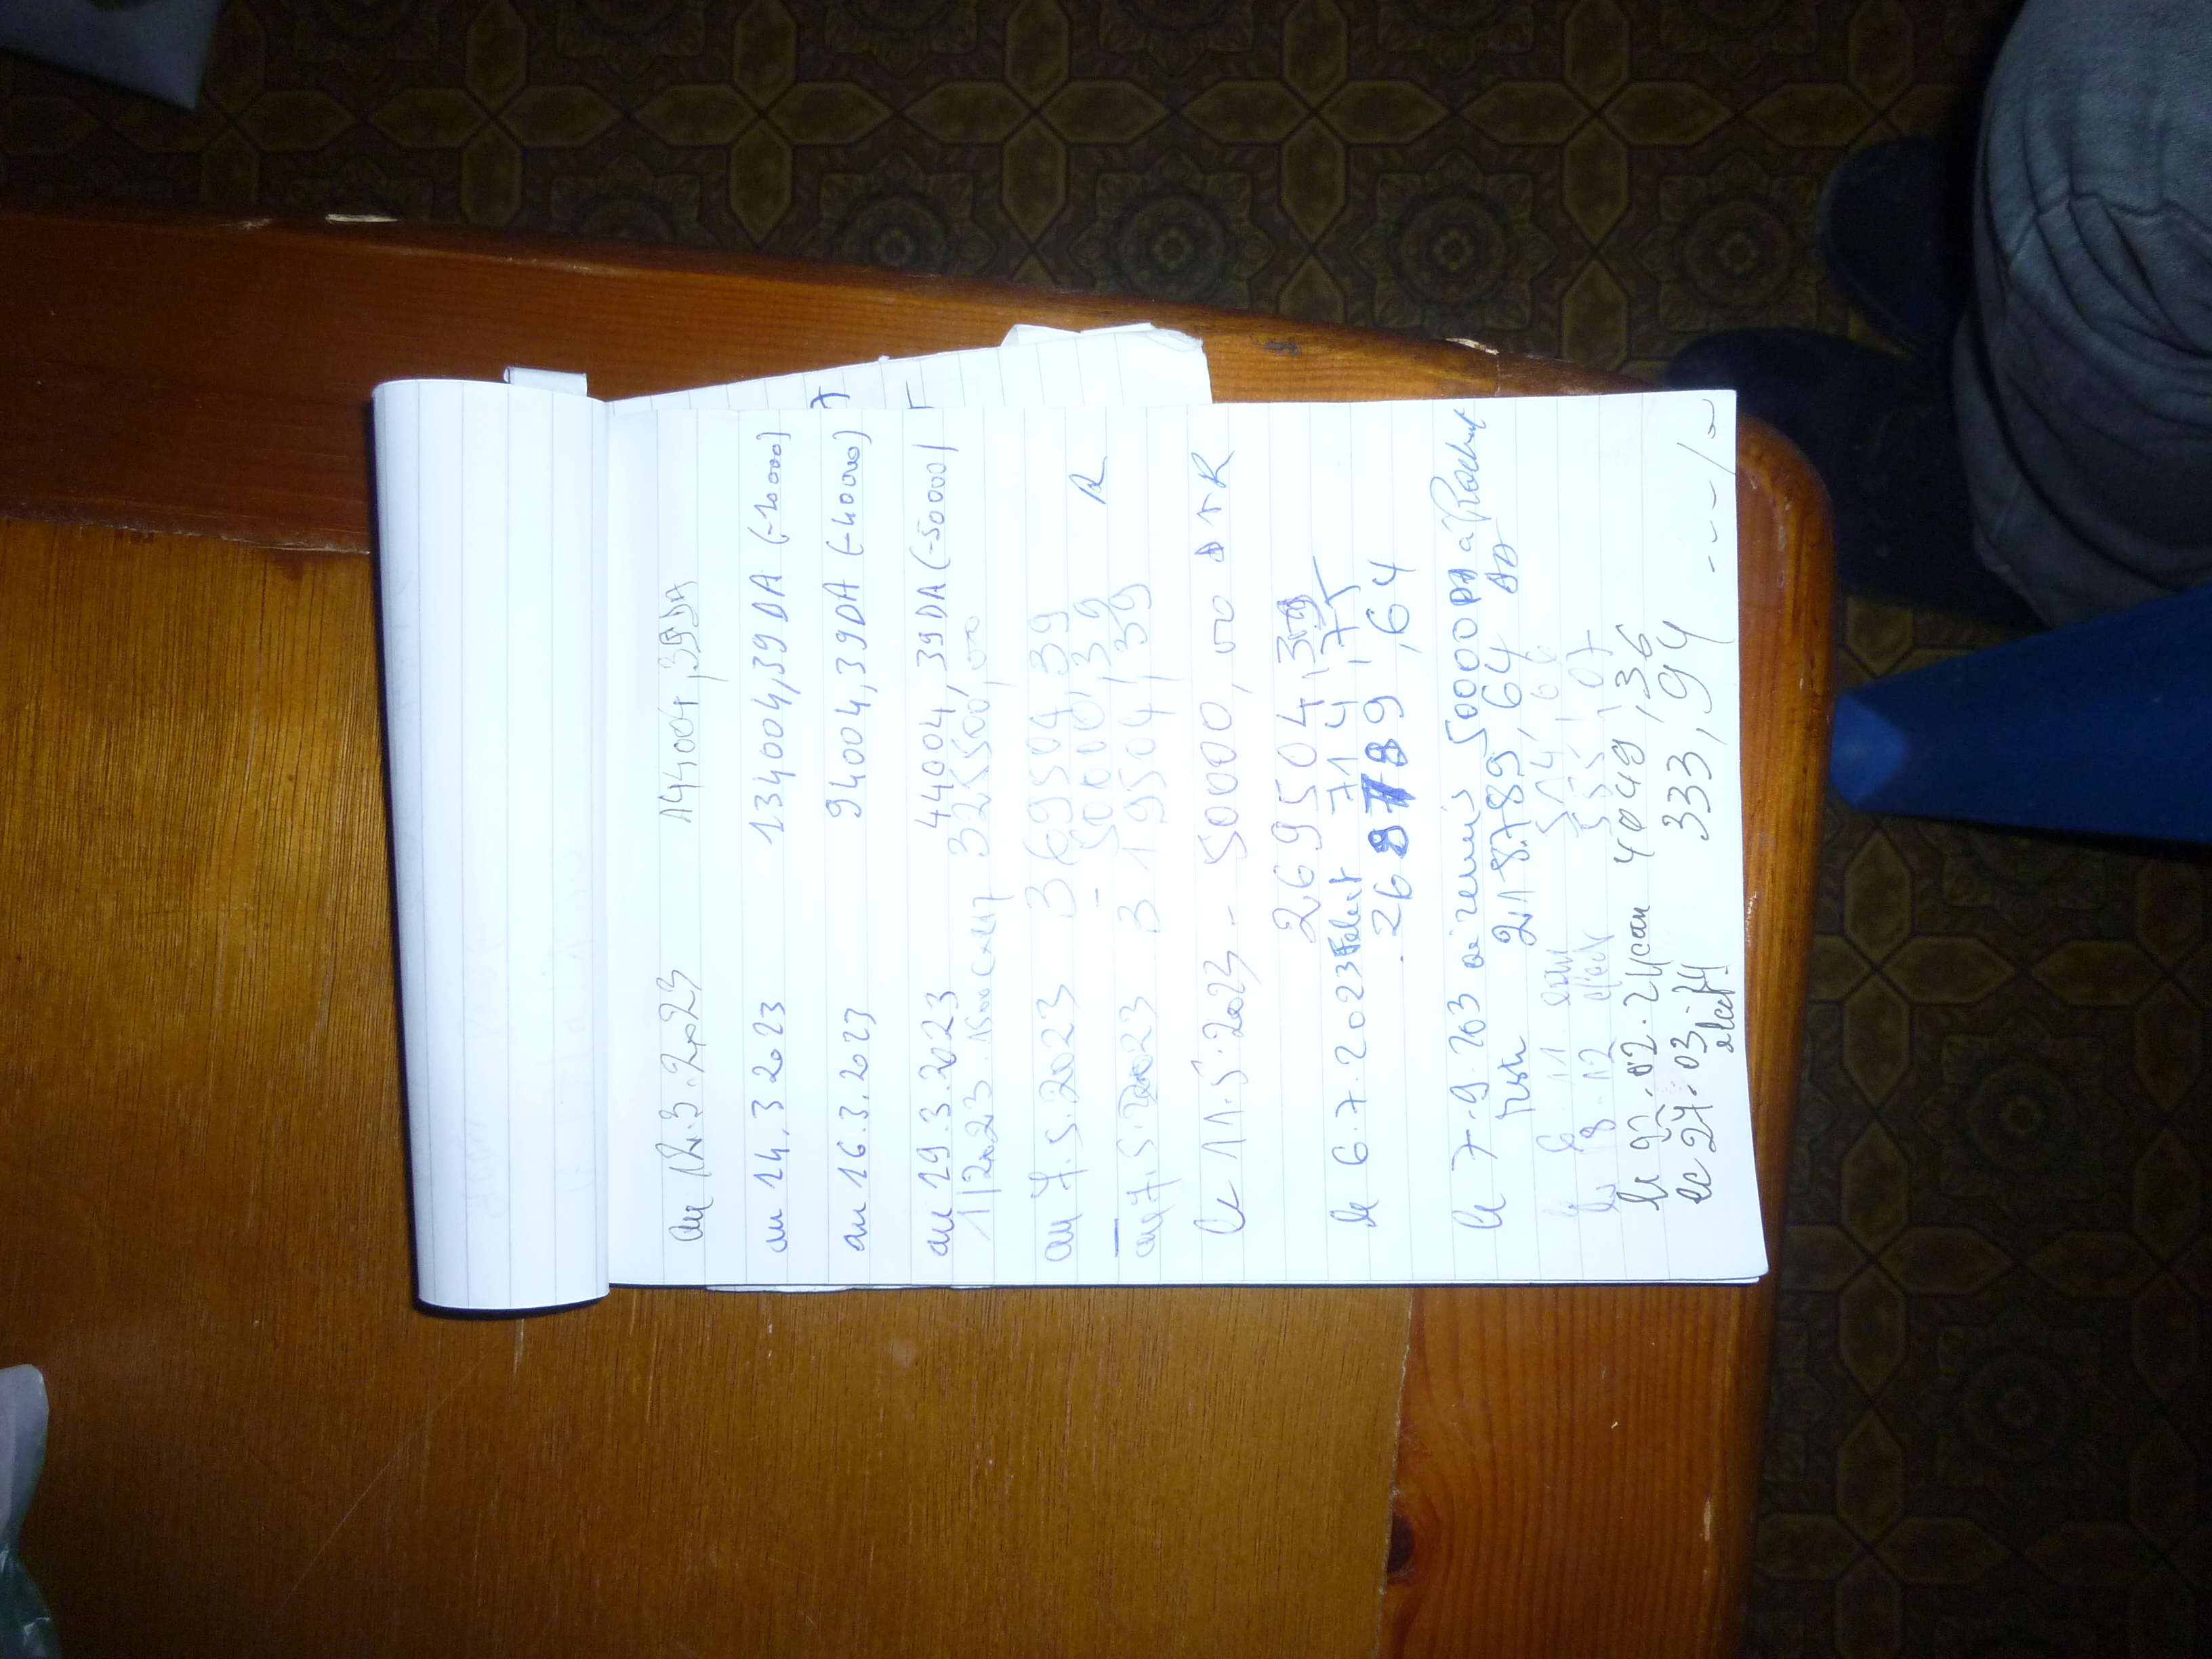 au 12.3.2023 144004,39DA
au 14.3.2023 134004,39DA (-10000)
au 16.3.2023 94004,39DA (-40000)
au 19.3.2023 44004,39DA (-50000)
325500,00
au 7.5.2023 369504,39 R
- 50000,39
au 7.5.2023 319504,39
le 11.5.2023 - 50000,00 DTR
269504,39
le 6.7.2023 714,75
268789,64
le 7.9.203 remis 50000DA à Rachid
Reste 218789,64 DA
le 8.11 eau 514,66
le 8.12 elect 555,07
le 02.24 eau 4049,36
le 24.03.24 333,94 ---/~
elect